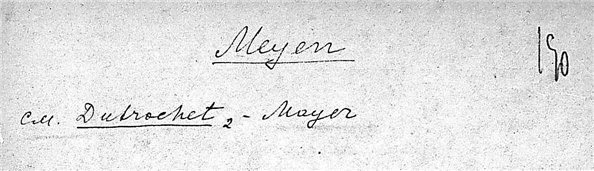 Meyen 190
см. Dutrochet₂ - Mayer